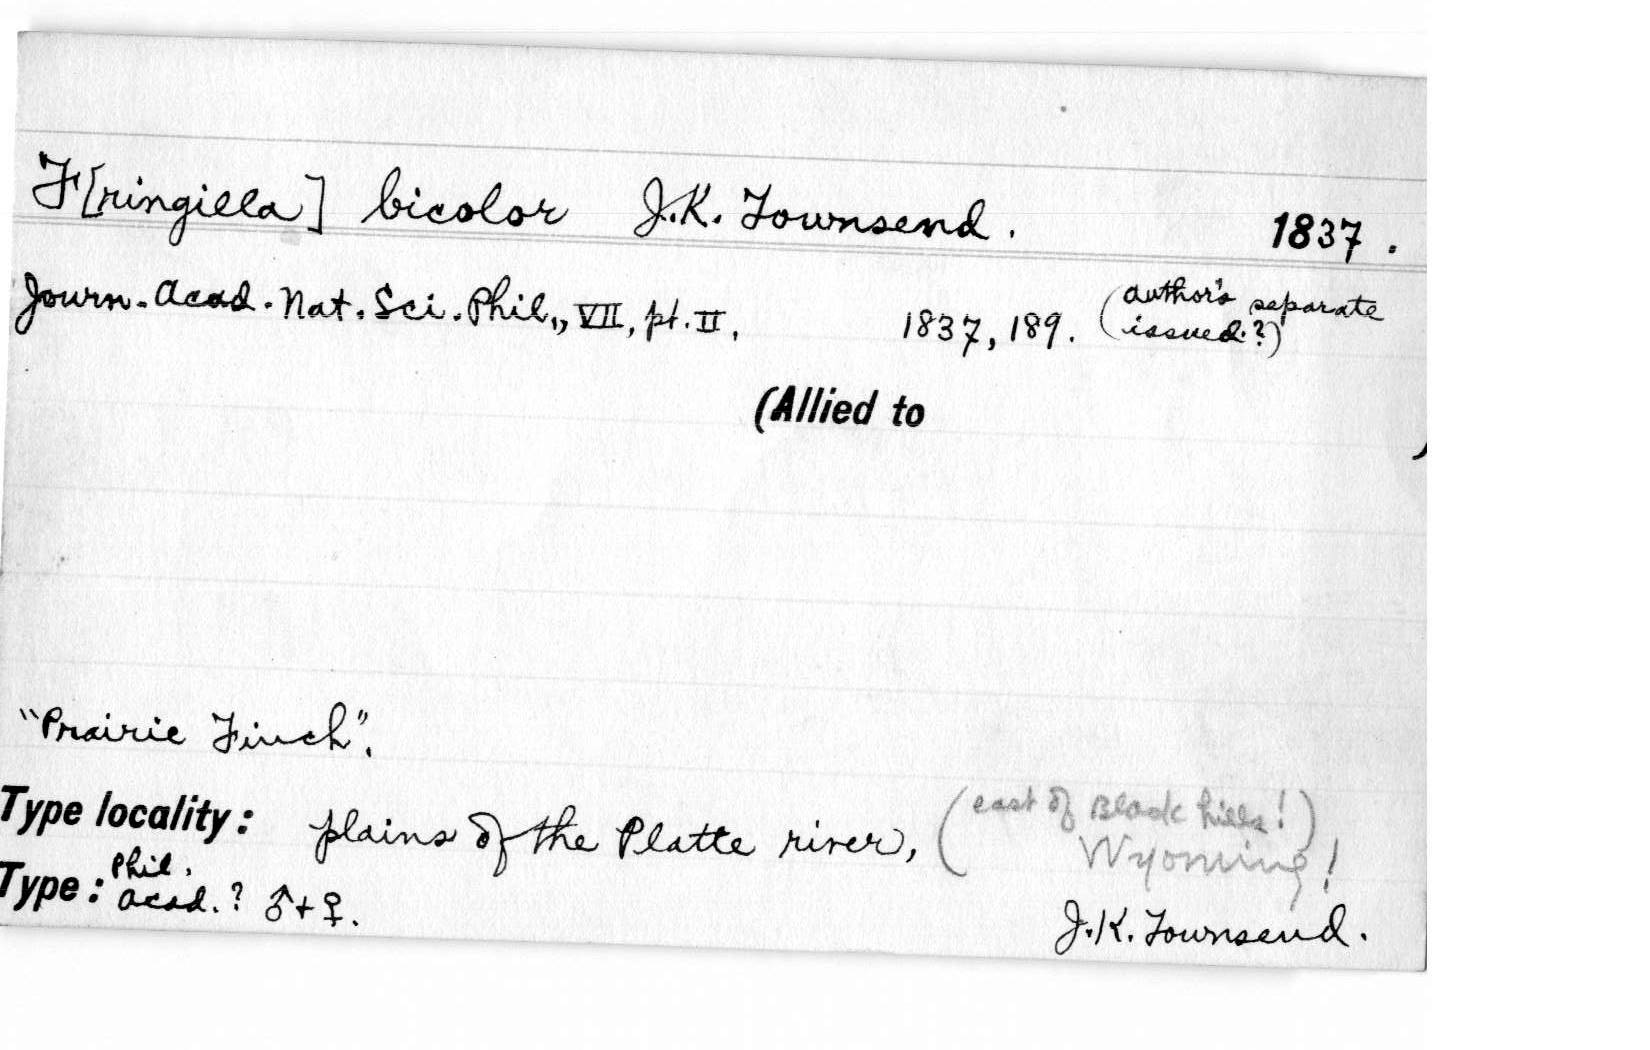 F[ringilla] bicolor J.K. Townsend. 1837.
Journ. Acad. Nat. Sci. Phil., VII, pt. II, 1837, 189. (author's separate
issued?)
(Allied to )
"Prairie Finch".
Type locality: plains of the Platte river, (east of Black hills!)
Wyoming!
Type: Phil.
Acad.? ♂+♀.
J.K. Townsend.